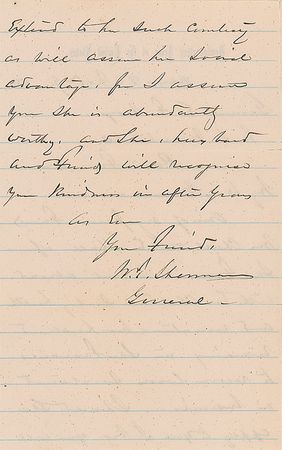 Extend to her such courtesy
as will assure her social
advantage, for I assure
you she is abundantly
worthy, and she, husband
and friends will recognise
your kindness in after years
as Ever
Your Friend,
W.T. Sherman
General -